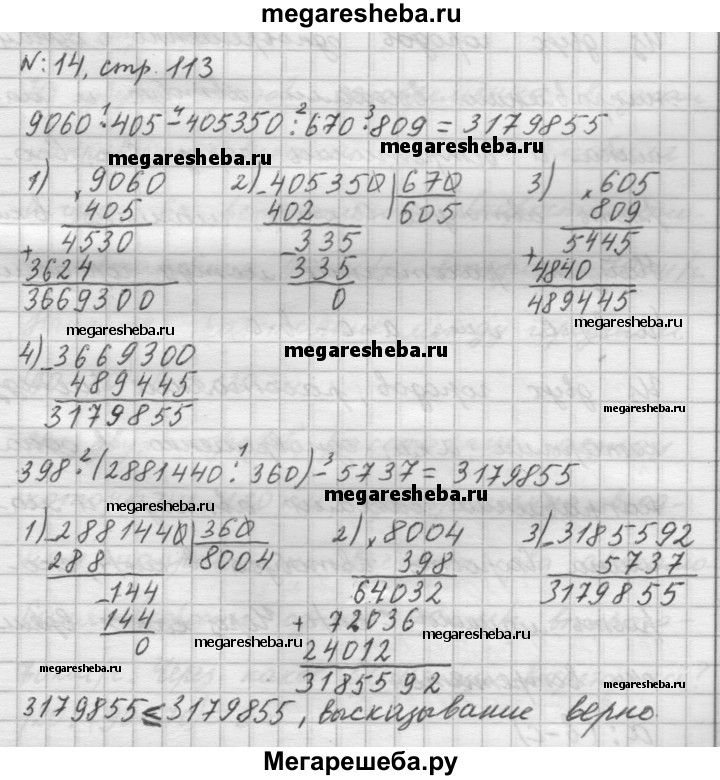 megaresheba.ru
№ 14, стр. 113
9060 · 405 − 405350 : 670 · 809 = 3179855
1 4 2 3
megaresheba.ru
megaresheba.ru
1) × 9060
405
4530
+ 3624
3669300
2) − 405350 | 670
402 605
− 335
335
0
3) × 605
809
5445
+ 4840
489445
megaresheba.ru
megaresheba.ru
megaresheba.ru
4) − 3669300
489445
3179855
megaresheba.ru
398 · (2881440 : 360) − 5737 = 3179855
2 1 3
megaresheba.ru
megaresheba.ru
1) − 2881440 | 360
288 8004
− 144
144
0
2) × 8004
398
64032
+ 72036
24012
3185592
3) − 3185592
5737
3179855
megaresheba.ru
megaresheba.ru
megaresheba.ru
3179855 ≤ 3179855, высказывание верно
Мегарешеба.ру